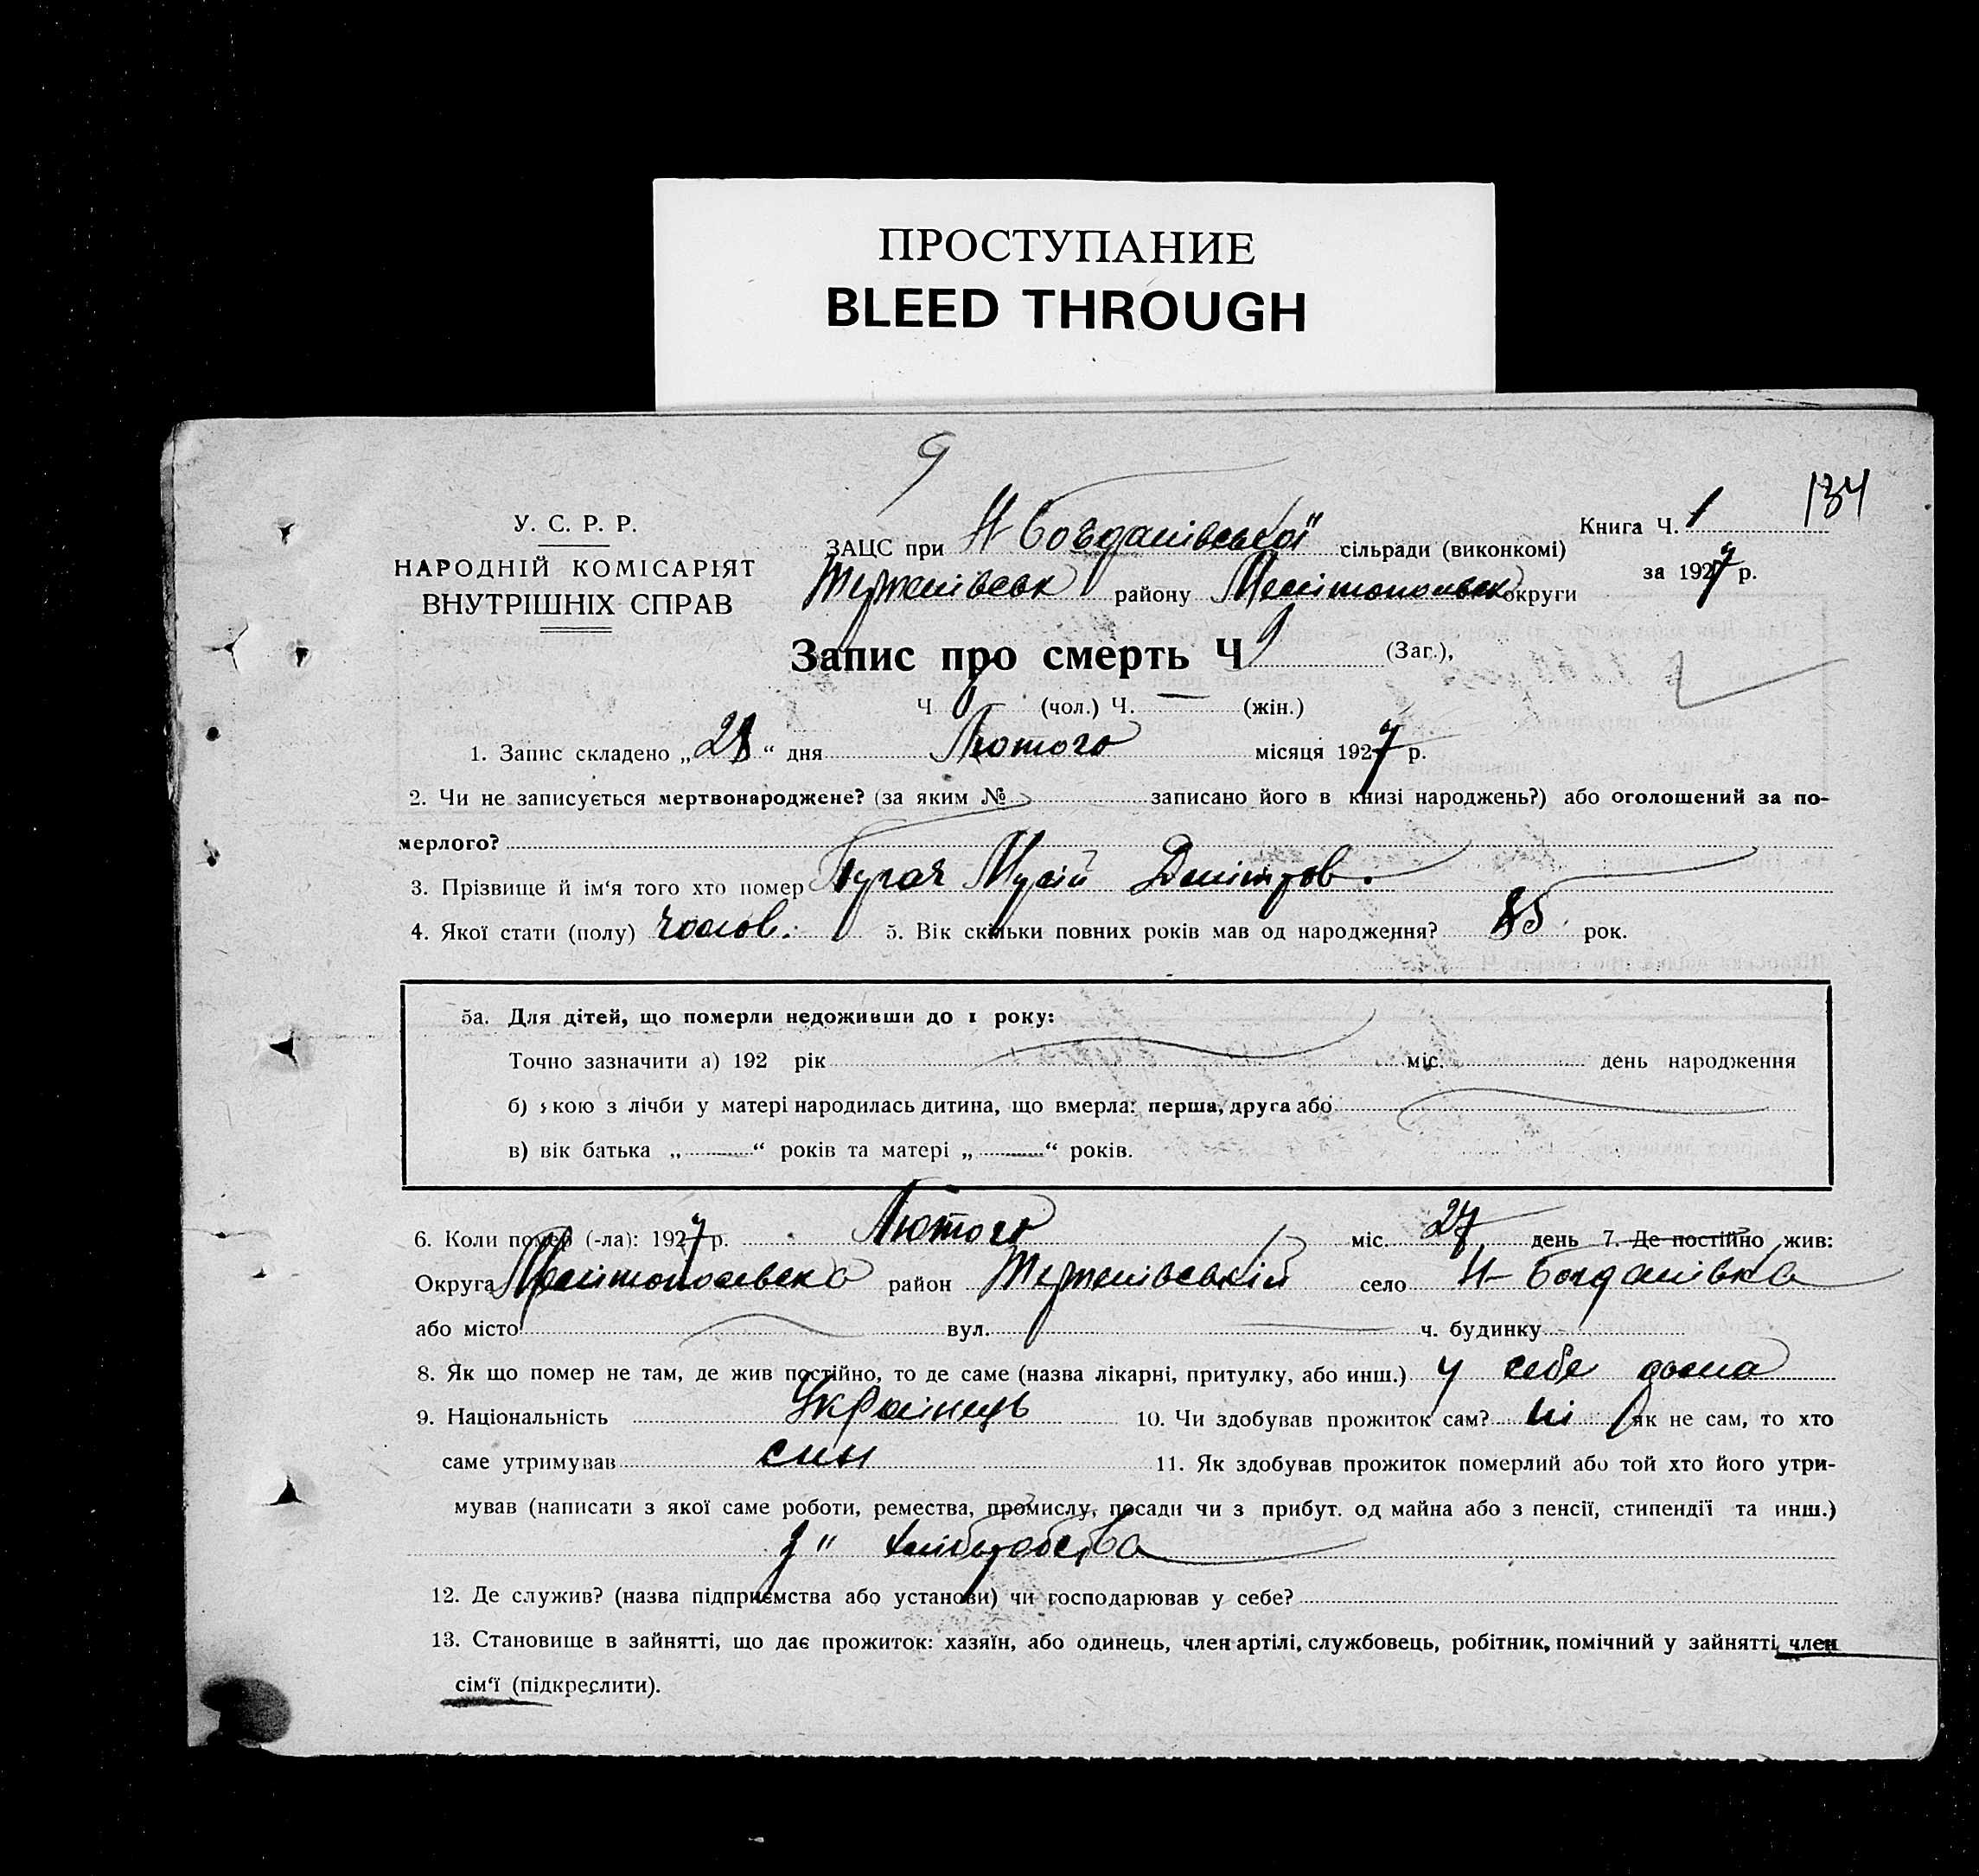 ПРОСТУПАНИЕ
BLEED THROUGH
9
134
У. С. Р. Р.
НАРОДНІЙ КОМІСАРІЯТ
ВНУТРІШНІХ СПРАВ
ЗАЦС при Н Богданівської сільради (виконкомі)
району Мелітопольськ округи
Книга Ч. 1
за 1927 р.
Запис про смерть Ч 9 (Заг.),
Ч (чол.) Ч. — (жін.)
1. Запис складено „28“ дня Лютого місяця 1927 р.
2. Чи не записується мертвонароджене? (за яким № записано його в книзі народжень?) або оголошений за по-
мерлого?
3. Прізвище й ім'я того хто помер Пугач Мусій Дмітров.
4. Якої стати (полу) чолов. 5. Вік скільки повних років мав од народження? 85 рок.
5а. Для дітей, що померли недоживши до 1 року:
Точно зазначити а) 192 рік міс. день народження
б) якою з лічби у матері народилась дитина, що вмерла: перша, друга або
в) вік батька „ “ років та матері „ “ років.
6. Коли помер (-ла): 1927 р. Лютого міс. 27 день 7. Де постійно жив:
Округа Мелітопольська район село Н-Богданівка
або місто вул. ч. будинку
8. Як що помер не там, де жив постійно, то де саме (назва лікарні, притулку, або инш.) у себе дома
9. Національність Українець 10. Чи здобував прожиток сам? ні як не сам, то хто
саме утримував син 11. Як здобував прожиток померлий або той хто його утри-
мував (написати з якої саме роботи, ремества, промислу, посади чи з прибут. од майна або з пенсії, стипендії та инш.)
з" хліборобства
12. Де служив? (назва підприємства або установи) чи господарював у себе?
13. Становище в зайнятті, що дає прожиток: хазяїн, або одинець, член артілі, службовець, робітник, помічний у зайнятті, член
сім'ї (підкреслити).